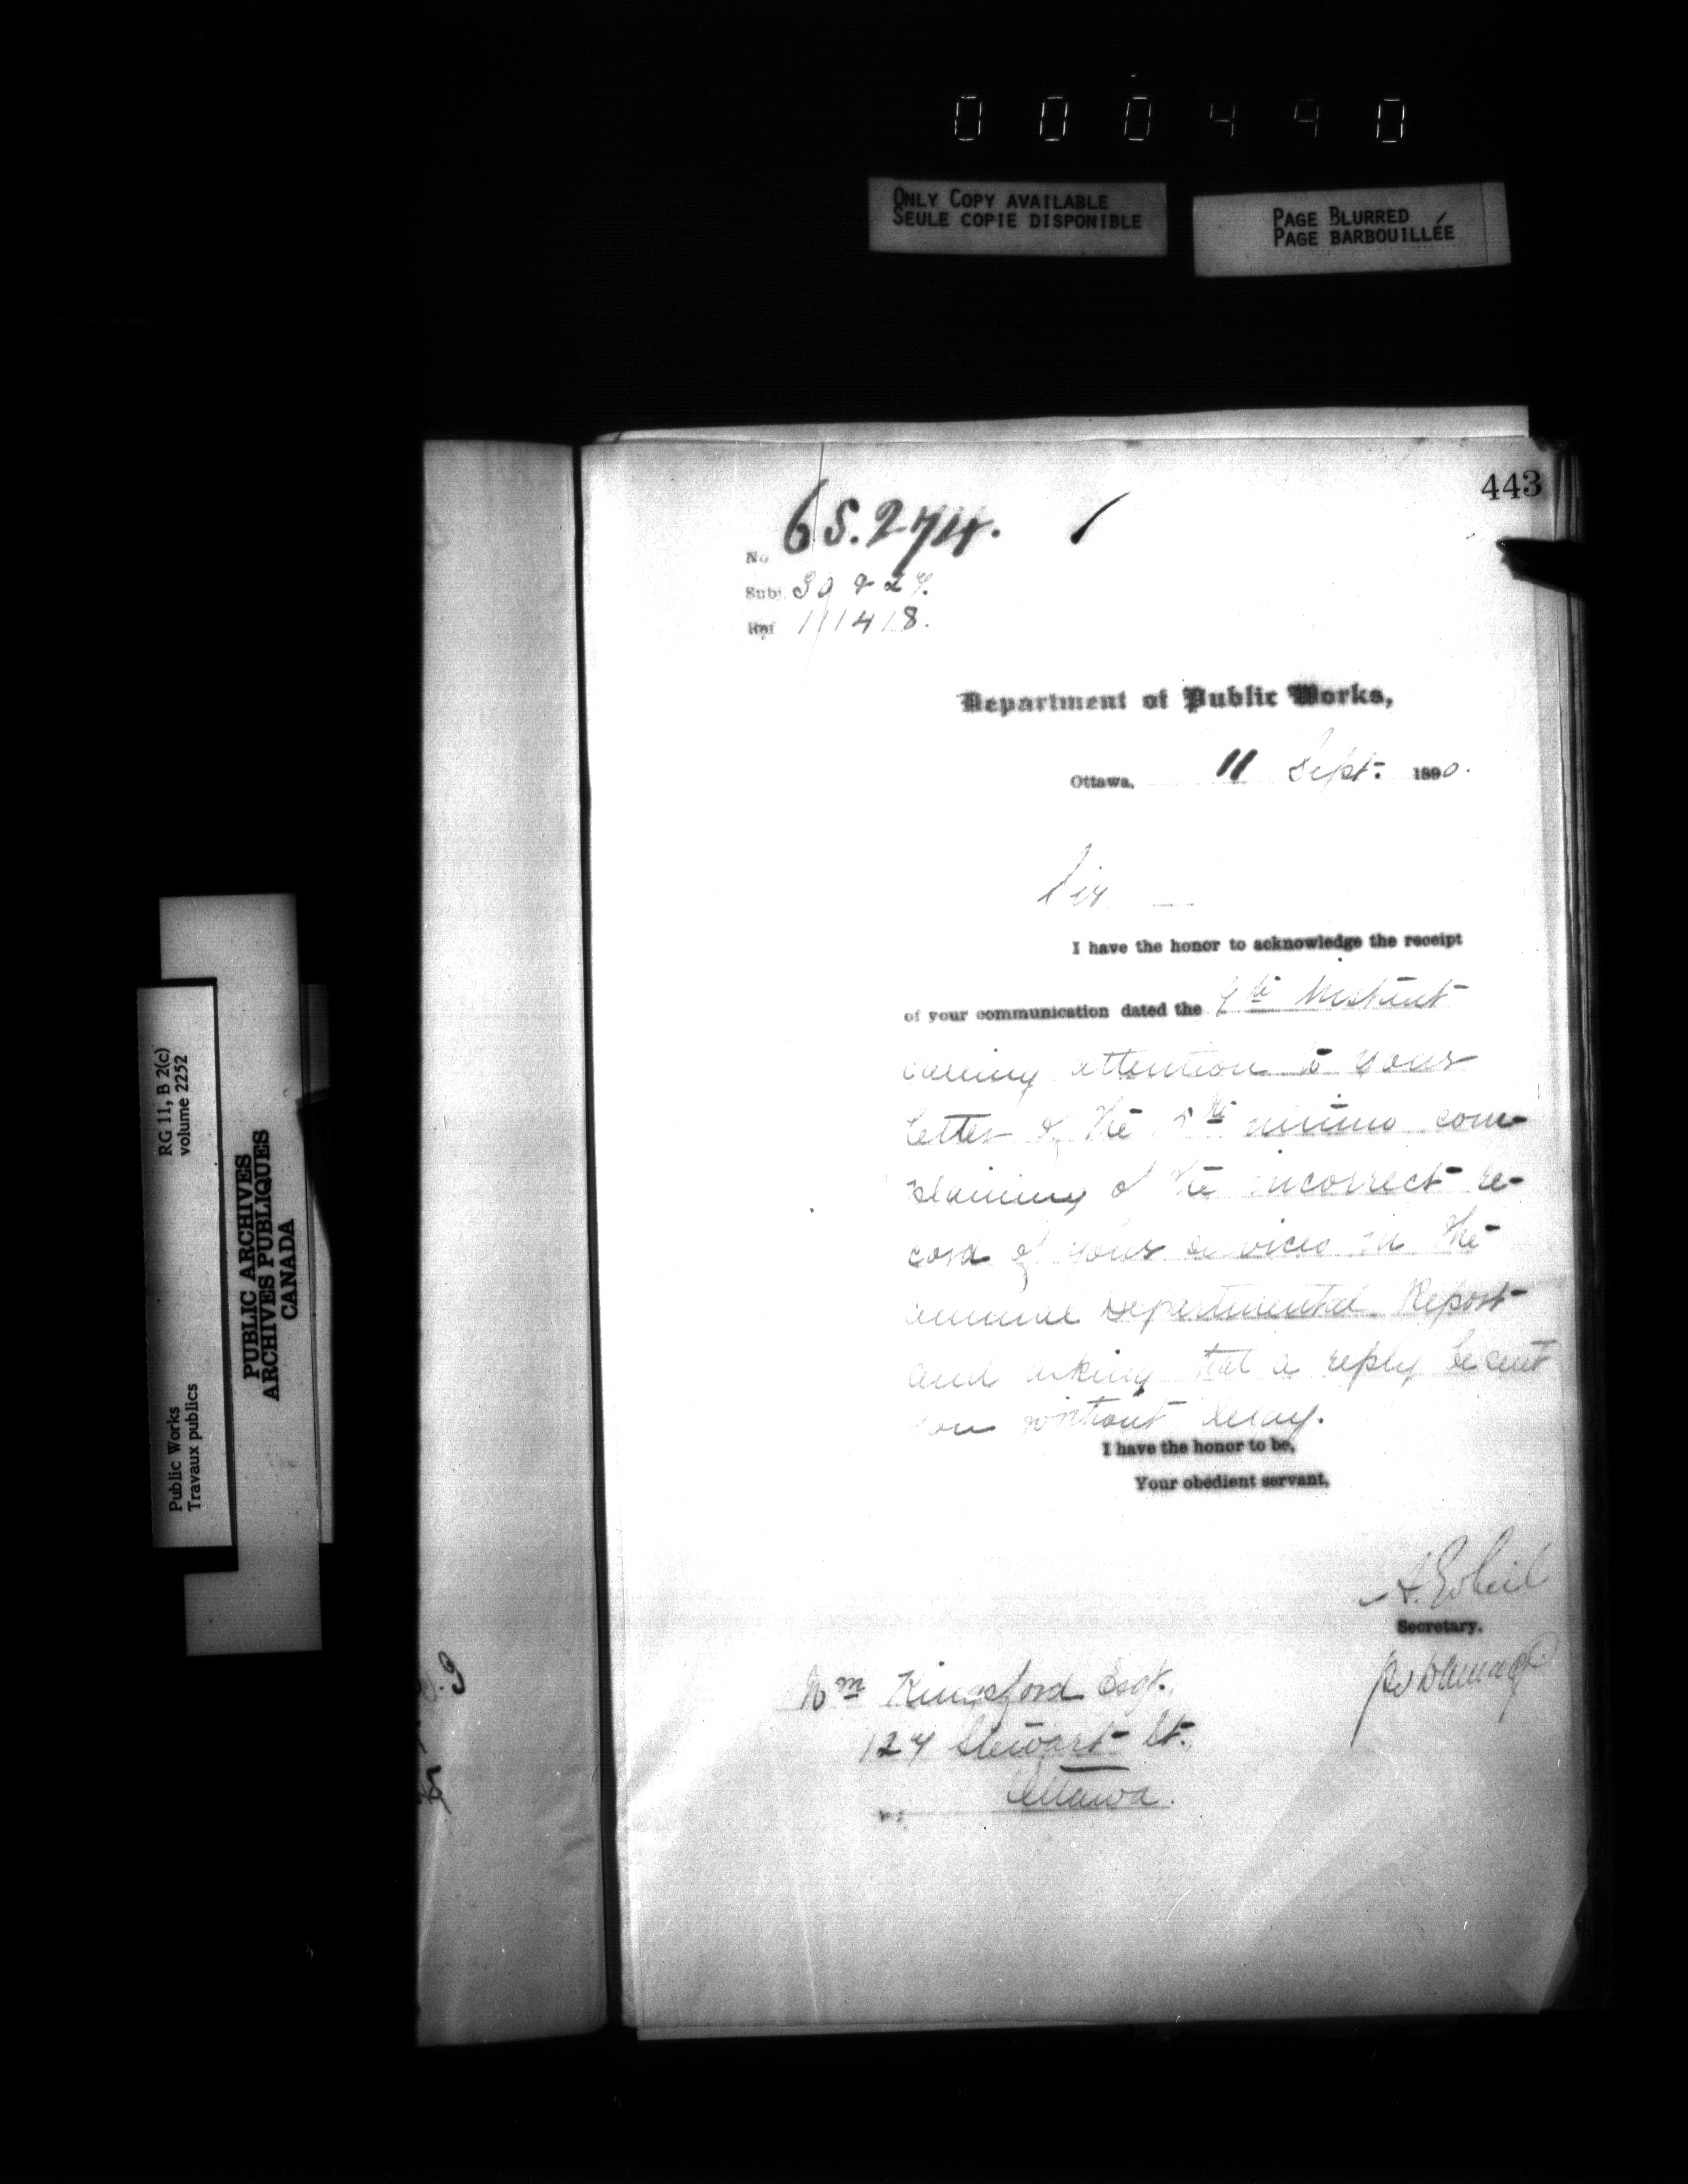 000440
ONLY COPY AVAILABLE
SEULE COPIE DISPONIBLE
PAGE BLURRED
PAGE BARBOUILLÉE
443
No 65.274.
Subj. 30 & 27.
Ref. 111418.
Department of Public Works,
Ottawa, 11 Sept. 1890.
Sir —
I have the honor to acknowledge the receipt
of your communication dated the 9th instant
calling attention to your
letter of the 5th ultimo com-
plaining of the incorrect re-
cord of your services in the
annual Departmental Report
and asking that a reply be sent
you without delay.
I have the honor to be,
Your obedient servant,
A. Gobeil
Secretary.
Wm Kingsford Esqr.
127 Stewart St.
Ottawa.
RG 11, B 2(c)
volume 2252
Public Works
Travaux publics
PUBLIC ARCHIVES
ARCHIVES PUBLIQUES
CANADA